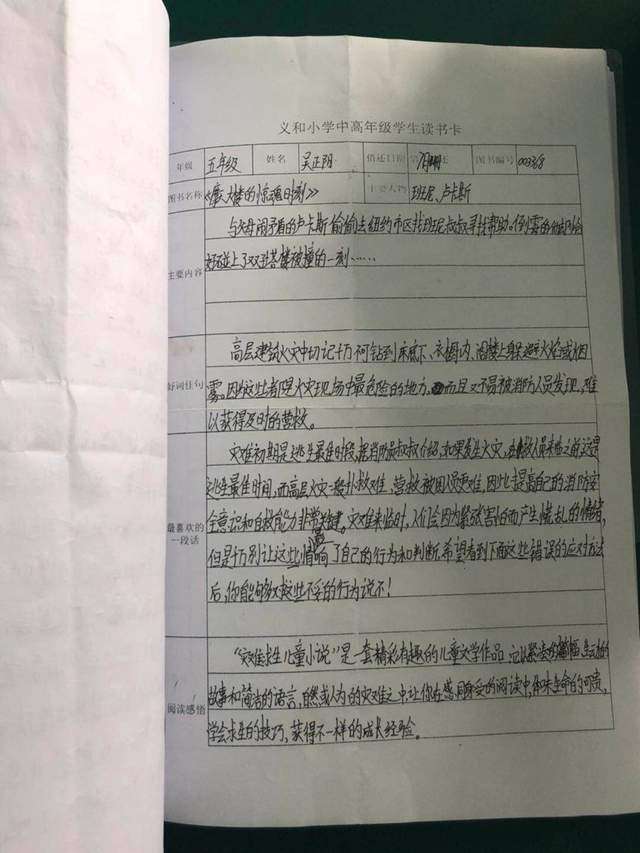 义和小学中高年级学生读书卡
年级 五年级 姓名 吴正阴 借还日期 图书编号 00338
图书名称 《大楼的惊魂时刻》 主要人物 班尼、卢卡斯
主要内容
与父母闹矛盾的卢卡斯偷偷去纽约市区找班尼叔叔寻找帮助。倒霉的他却恰
好碰上了双子塔楼被撞的一刻……
好词佳句
高层建筑火灾中切记千万不可钻到床底下、衣橱内、阁楼上躲避火焰或烟
雾。因为这些都是火灾现场中最危险的地方。而且又不易被消防人员发现,难
以获得及时的营救。
最喜欢的
一段话
灾难初期是逃生最佳时段,据消防叔叔介绍,如果发生火灾,在救人员来临之前这是
逃生最佳时间,而高层火灾一般扑救难,营救被困人员更难,因此提高自己的消防安
全意识和自救能力非常关键。灾难来临时,人们会因为紧张害怕而产生慌乱的情绪,
但是千万别让这些情影响了自己的行为和判断,希望看到下面这些错误的应对方法
后,你能够对这些不妥的行为说不!
阅读感悟
“灾难求生儿童小说”是一套精彩有趣的儿童文学作品
故事和简洁的语言,自然或人为的灾难之中,让你在感同身受的阅读中,体味生命的可贵,
学会求生的技巧,获得不一样的成长经验。